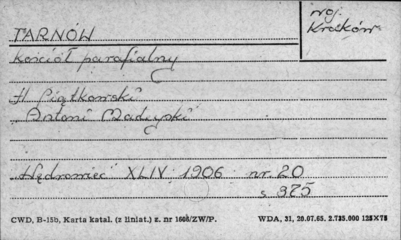 TARNÓW
woj.
Kraków
Kościół parafialny
H. Piątkowski
"Antoni Madeyski"
"Wędrowiec" XLIV 1906 nr. 20
s. 375
CWD, B-15b, Karta katal. (z liniat.) z. nr 1606/ZW/P. WDA, 31, 20.07.65. 2.725.000 125X75